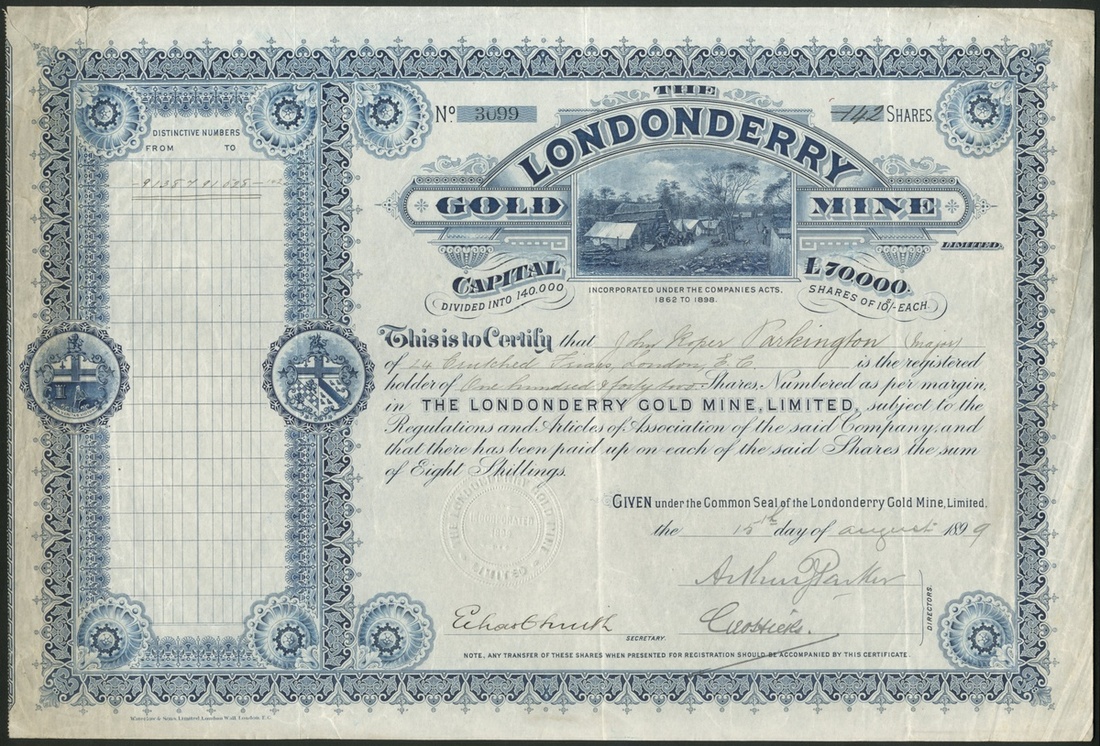 DISTINCTIVE NUMBERS
FROM TO
No. 3099
142 SHARES.
THE
LONDONDERRY
GOLD MINE
LIMITED.
CAPITAL £70000.
DIVIDED INTO 140.000 SHARES OF 10/- EACH.
INCORPORATED UNDER THE COMPANIES ACTS.
1862 TO 1898.
This is to Certify that John Roper Parkington (Major)
of 24 Crutched Friars, London, E C is the registered
holder of One hundred & forty two Shares Numbered as per margin,
in THE LONDONDERRY GOLD MINE, LIMITED, subject to the
Regulations and Articles of Association of the said Company, and
that there has been paid up on each of the said Shares the sum
of Eight Shillings.
GIVEN under the Common Seal of the Londonderry Gold Mine, Limited.
the 15th day of august 1899
Arthur Parker
DIRECTORS.
SECRETARY.
NOTE, ANY TRANSFER OF THESE SHARES WHEN PRESENTED FOR REGISTRATION SHOULD BE ACCOMPANIED BY THIS CERTIFICATE.
& Sons Limited London Wall London E.C.